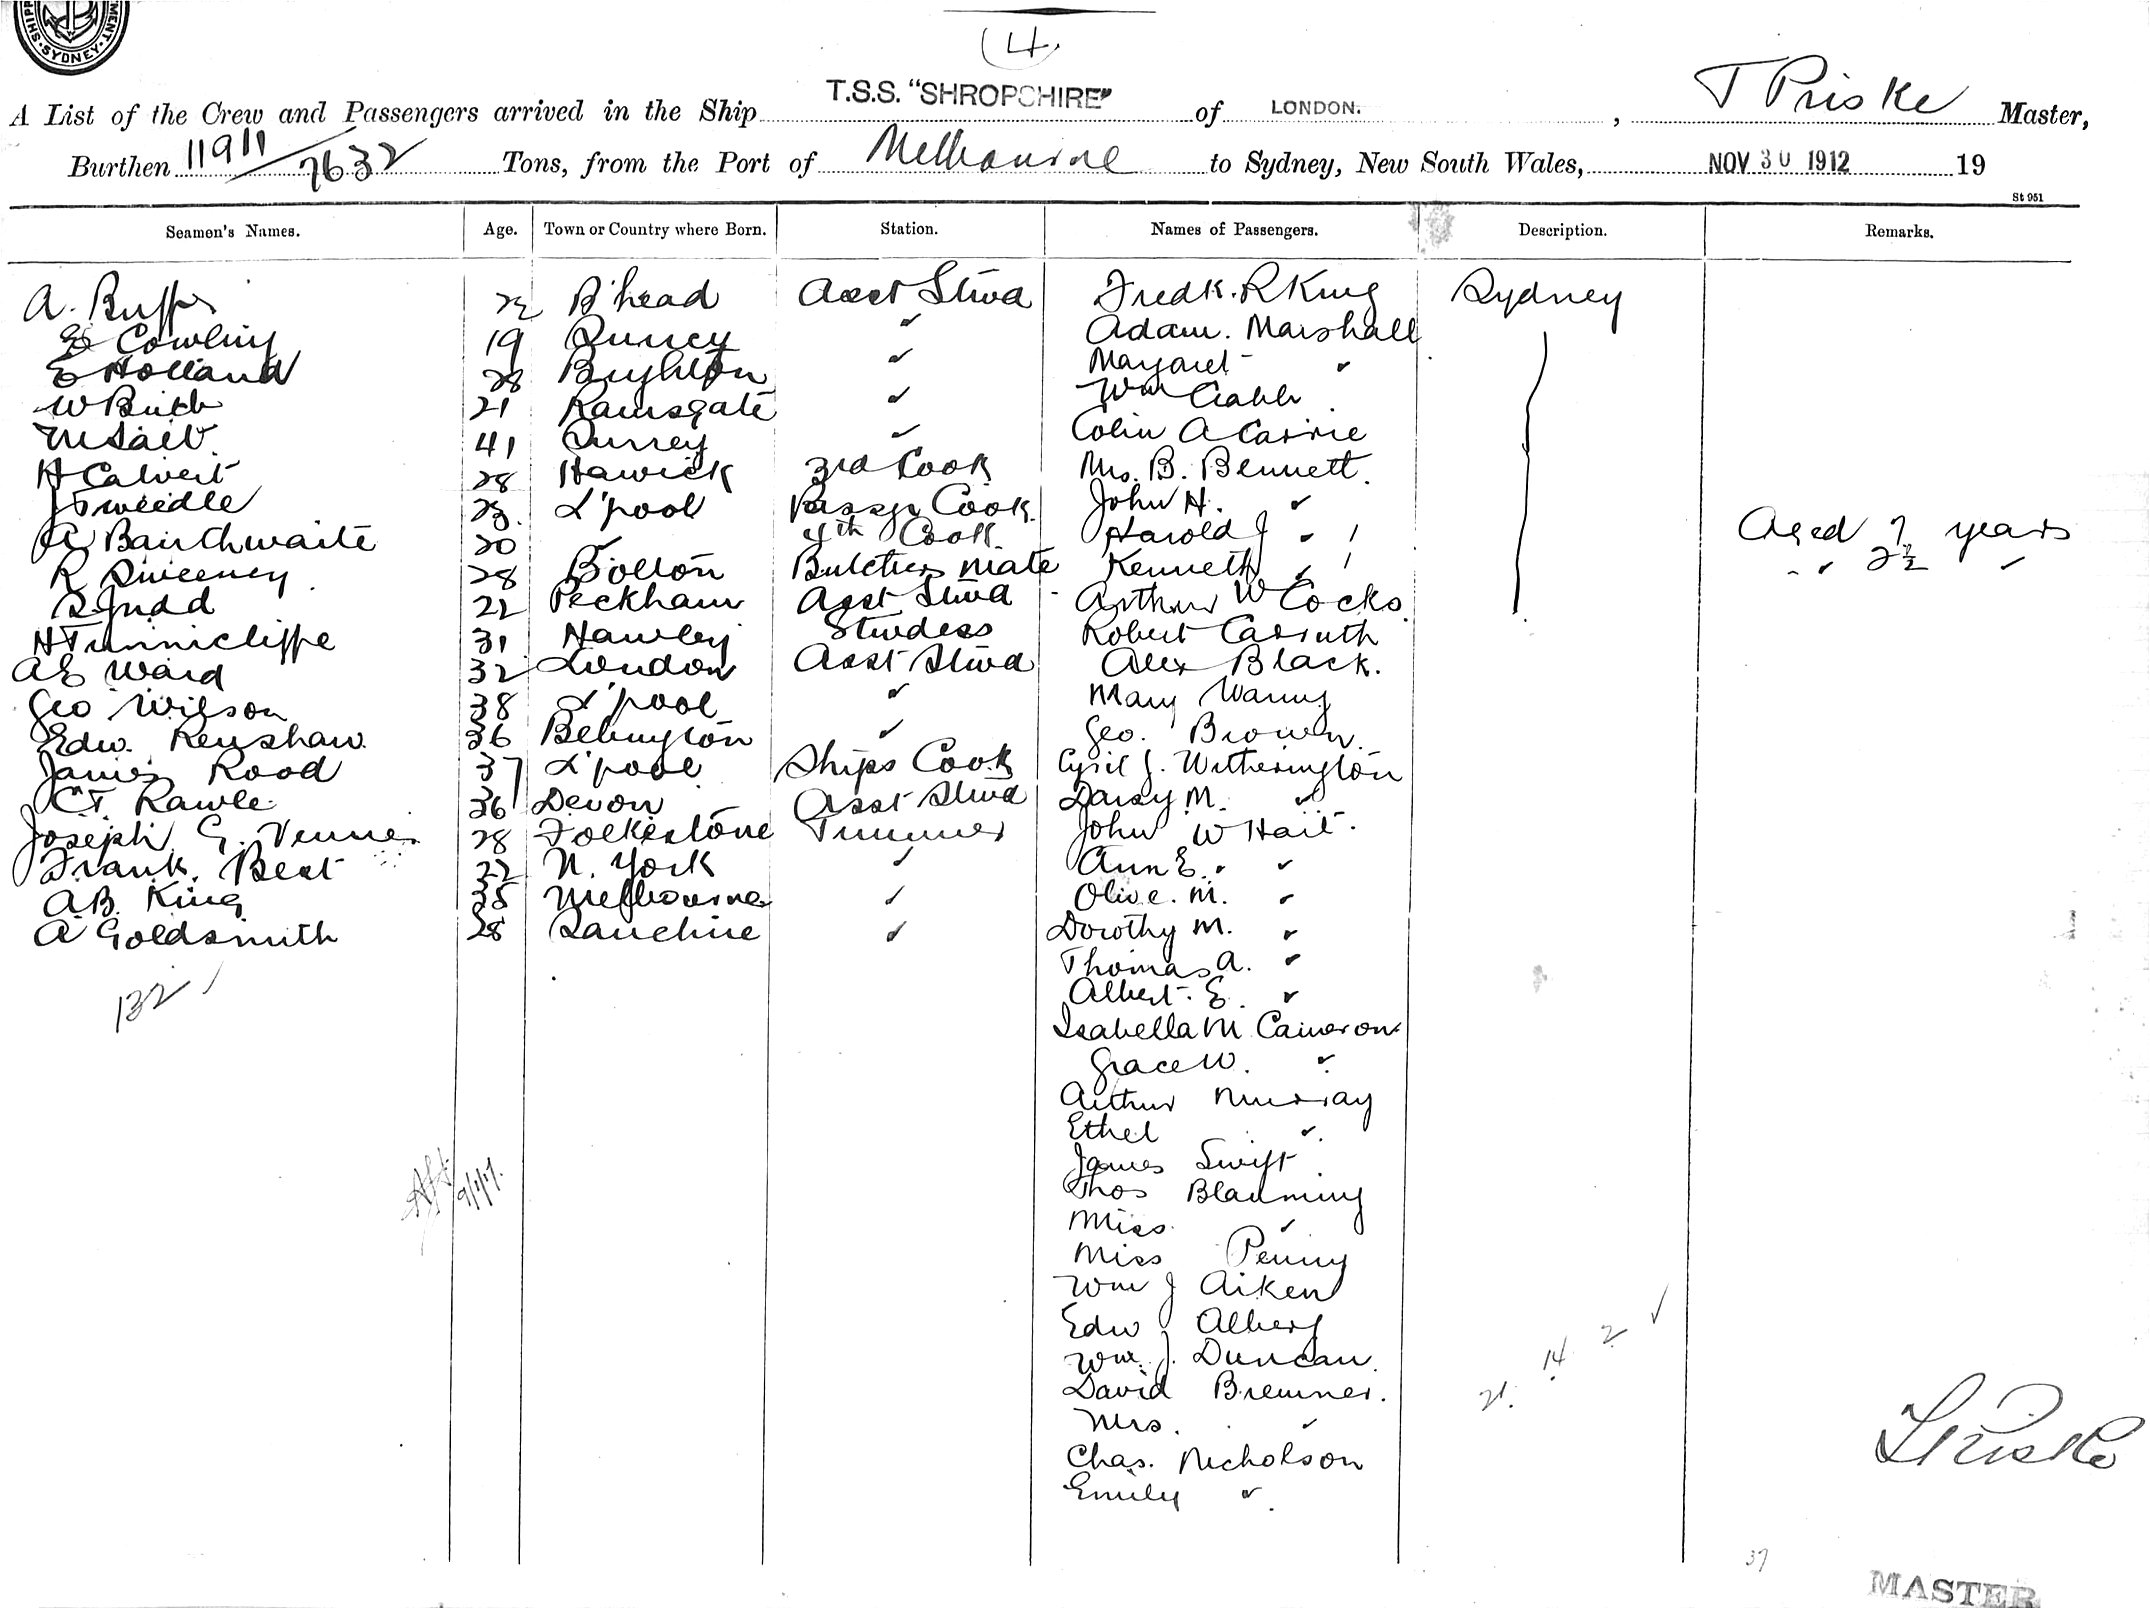 SYDNEY
(4)
T.S.S. "SHROPSHIRE"
A List of the Crew and Passengers arrived in the Ship of LONDON. , T Priske Master,
Burthen 11911/7632 Tons, from the Port of Melbourne to Sydney, New South Wales, NOV 30 1912 19
St 951
Seamen's Names. Age. Town or Country where Born. Station. Names of Passengers. Description. Remarks.
A. 22 B'head Asst Stwd Fredk. R King Sydney
E Cowling 19 Surrey " Adam. Marshall
E Holland 28 Brighton " Margaret "
W 21 Ramsgate " Wm Crabb
41 Surrey " Colin A Carrie
H Calvert 28 Hawick 3rd Cook Mrs. B. Bennett.
J Tweedle 23. L'pool Passgr Cook. John H. "
A Bairthwaite 20 " 4th Cook. Harold J " 1 Aged 7 years
R Sweeney 28 Bolton Butchers mate Kenneth " 1 " " 2½ "
S Judd 22 Peckham Asst Stwd Arthur W Cocks
H Tunnicliffe 31 Hawley Stwdess Robert Carruth
AE Ward 32 London Asst Stwd Alex Black.
Geo Wilson 38 L'pool " Mary Wanny
Edw. Renshaw 36 Bebington " Geo. Brown.
James Rood 37 L'pool Ships Cook Cyril J. Witherington
CT. Rawle 36 Devon Asst Stwd Daisy M. "
Joseph G. Venner 28 Folkestone Trimmer John W Hait.
Frank. Best 22 N. York " Ann E. "
AB. King 35 Melbourne " Olive. M. "
A Goldsmith 28 " Dorothy M. "
Thomas A. "
132 Albert. E. "
Isabella M Cameron
Grace W. "
Arthur Murray
Ethel "
James Swift
Thos Blanming
Miss "
Miss Penny
Wm J Aiken
Edw J Alberg
Wm. J. Duncan.
David Bremner.
Mrs. "
Chas. Nicholson
Emily "
21. 14. 2
T Priske
37
MASTER